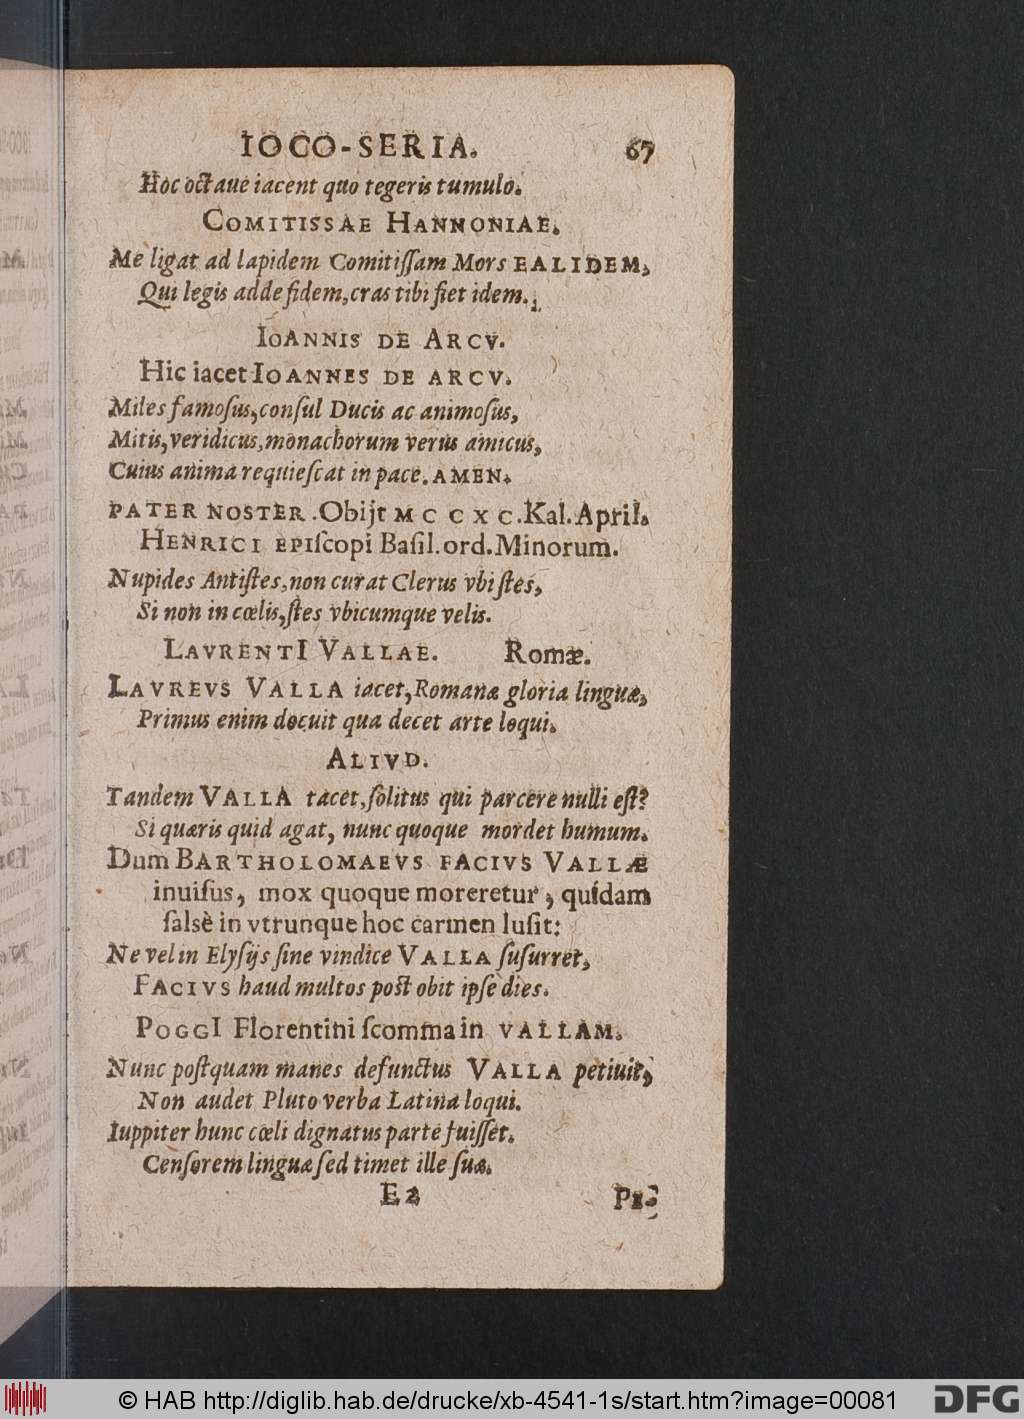 IOCO-SERIA. 67
Hoc octaue iacent quo tegeris tumulo.
COMITISSAE HANNONIAE.
Me ligat ad lapidem Comitiſſam Mors EALIDEM,
Qui legis adde fidem, cras tibi fiet idem.
IOANNIS DE ARCV.
Hic iacet IOANNES DE ARCV.
Miles famoſus, conſul Ducis ac animoſus,
Mitis, veridicus, monachorum verus amicus,
Cuius anima requieſcat in pace. AMEN.
PATER NOSTER. Obijt MCCXC. Kal. April.
HENRICI EPIſcopi Baſil. ord. Minorum.
Nupides Antiſtes, non curat Clerus vbi ſtes,
Si non in cœlis, ſtes vbicumque velis.
LAVRENTI VALLAE. Romæ.
LAVREVS VALLA iacet, Romanæ gloria linguæ,
Primus enim docuit qua decet arte loqui.
ALIVD.
Tandem VALLA tacet, ſolitus qui parcere nulli eſt?
Si quæris quid agat, nunc quoque mordet humum.
Dum BARTHOLOMAEVS FACIVS VALLÆ
inuiſus, mox quoque moreretur, quídam
ſalsè in vtrunque hoc carmen luſit:
Ne vel in Elyſijs ſine vindice VALLA ſuſurret,
FACIVS haud multos poſt obit ipſe dies.
POGGI Florentini ſcomma in VALLAM.
Nunc poſtquam manes defunctus VALLA petiuit,
Non audet Pluto verba Latina loqui.
Iuppiter hunc cœli dignatus parte fuiſſet.
Cenſorem linguæ ſed timet ille ſuæ.
E2
© HAB http://diglib.hab.de/drucke/xb-4541-1s/start.htm?image=00081
DFG